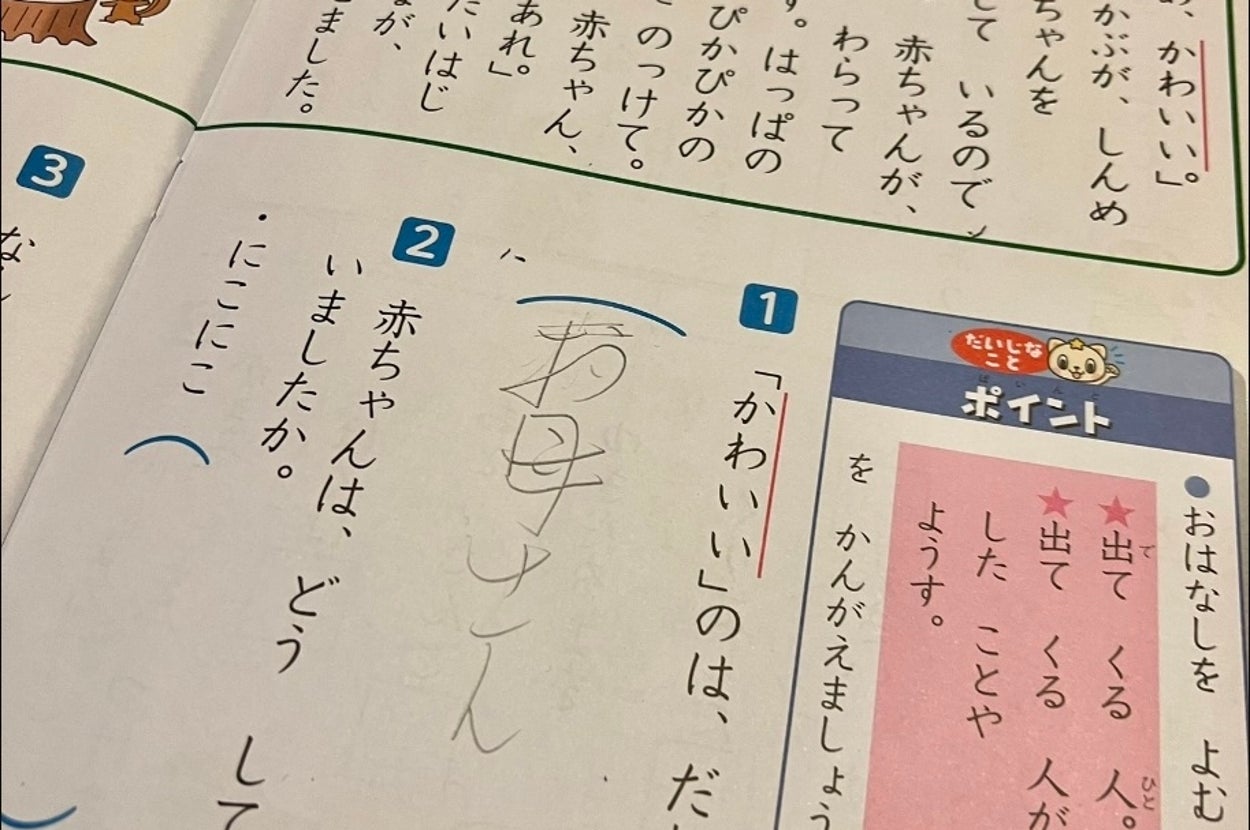 かわいい」。
かぶが、しんめ
ちゃんを
して いるので
赤ちゃんが、
わらって
す。はっぱの
ぴかぴかの
のっけて。
赤ちゃん、
あれ。」
たいはじ
が、
ました。
だいじな
こと
ポイント
●おはなしを よむ
★出て くる 人。
★出て くる 人が
した ことや
ようす。
を かんがえましょう
1
「かわいい」のは、だ
お母さん
2
赤ちゃんは、 どう して
いましたか。
・にこにこ
3